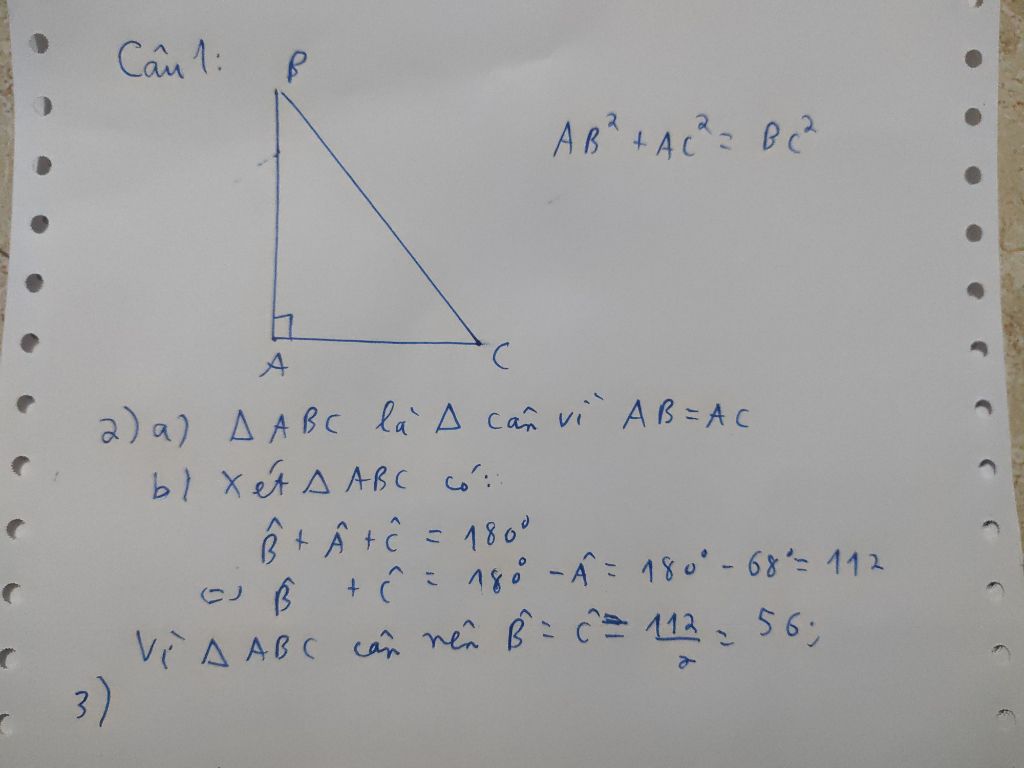 Câu 1:
B
AB² + AC² = BC²
A
C
2) a) Δ ABC là Δ cân vì AB = AC
b) Xét Δ ABC có:
B̂ + Â + Ĉ = 180°
<=> B̂ + Ĉ = 180° - Â = 180° - 68° = 112
Vì Δ ABC cân nên B̂ = Ĉ = 112/2 = 56;
3)